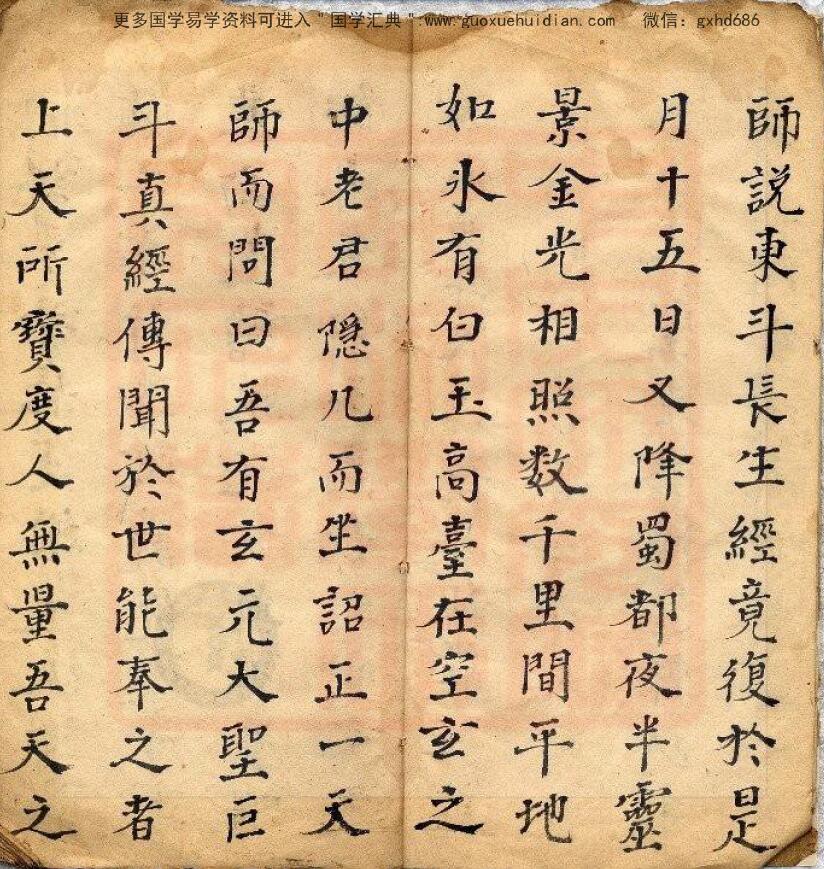 更多国学易学资料可进入"国学汇典":www.guoxuehuidian.com 微信：gxhd686
師說東斗長生經竟復於是
月十五日又降蜀都夜半靈
景金光相照数千里間平地
如氷有白玉高臺在空玄之
中老君隠几而坐詔正一天
師而問曰吾有玄元大聖巨
斗真經傳聞於世能奉之者
上天所寶度人無量吾天之